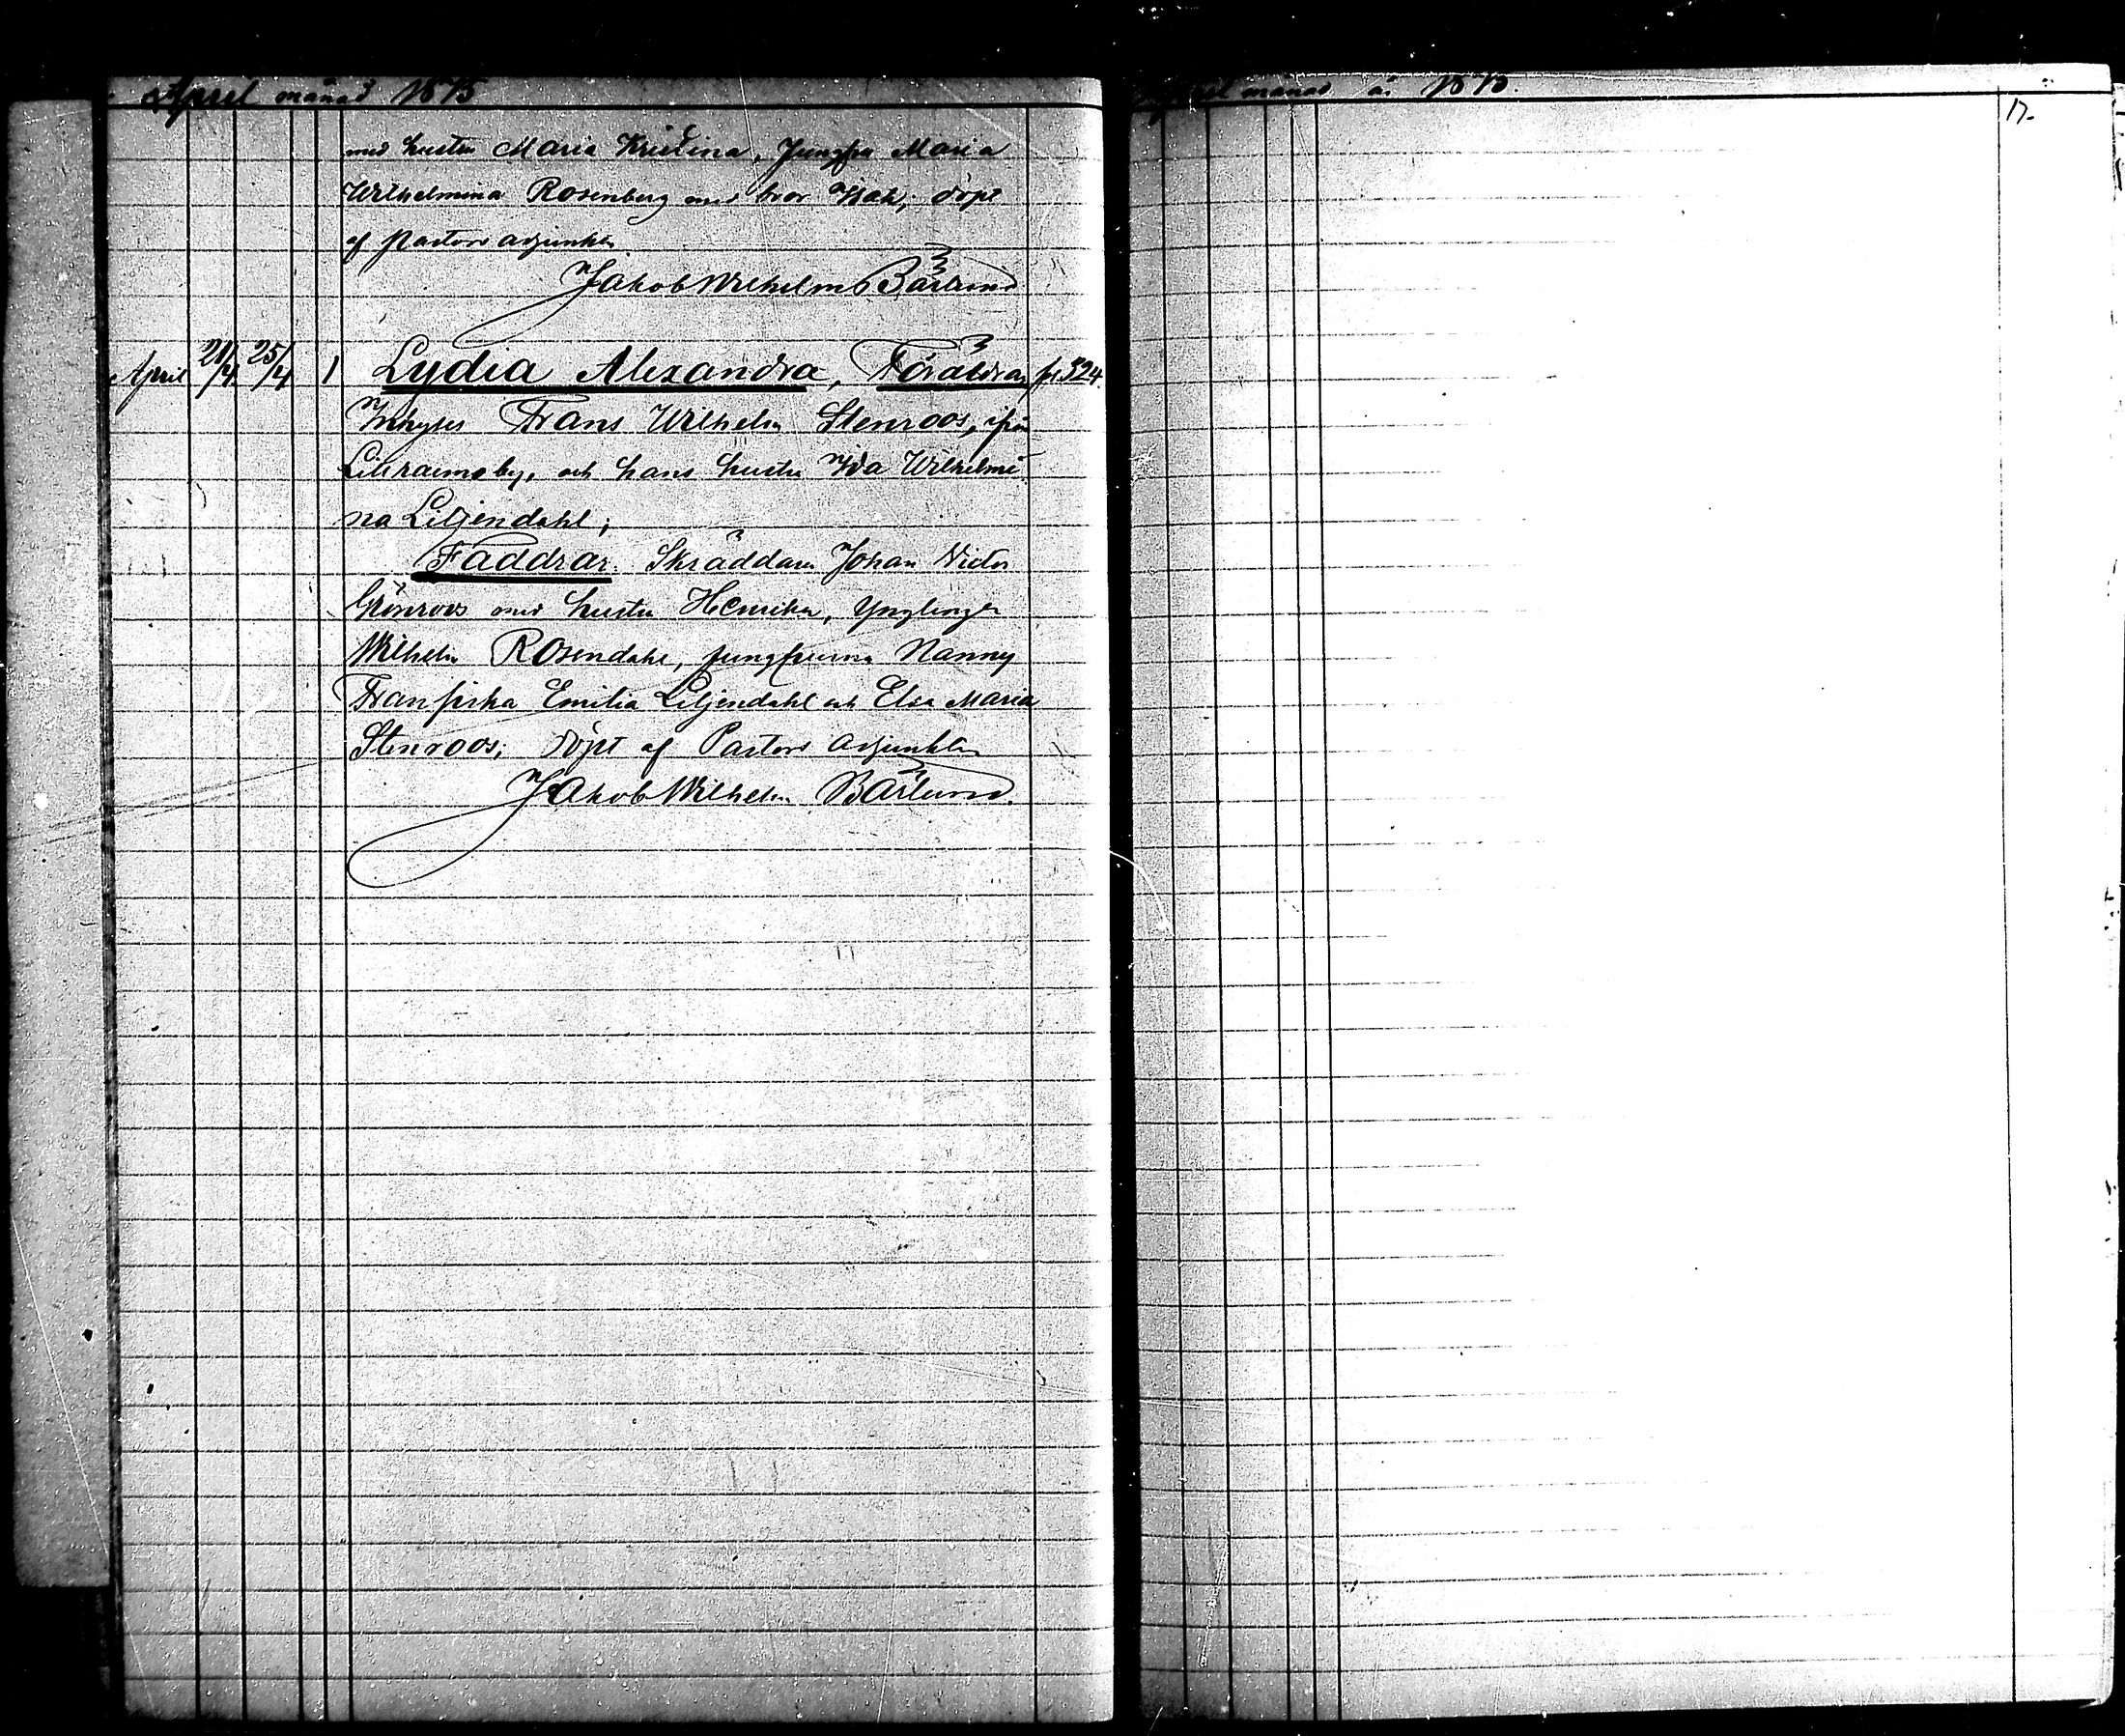 April månad 1875
med hustru Maria Kristina, Jungfru Maria
Wilhelmina Rosenberg med bror Isak; döpt
af Pastors adjunkten
Jakob Wilhelm Bärlund
April 21/4 25/4 1 Lydia Alexandra, Föräldrar, p. 324
Inhyses Frans Wilhelm Stenroos, ifrån
by, och hans hustru Ida Wilhelmi
na Liljendahl;
Faddrar: Skräddaren Johan Victor
Grönroos med hustru Henrika, Ynglingen
Wilhelm Rosendahl, jungfrurna Nanny
Fransiska Emilia Liljendahl och Elsa Maria
Stenroos; döpt af Pastors adjunkten
Jakob Wilhelm Bärlund.
April månad år 1875.
17.